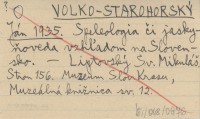 ?
VOLKO-STAROHORSKÝ
Ján 1935. Speleologia či jasky-
ňoveda vzhľadom na Sloven-
sko. — Liptovský Sv. Mikuláš,
Str. 156. Muzeum Slov. Krasu,
Muzeálna knižnica sv. 12.